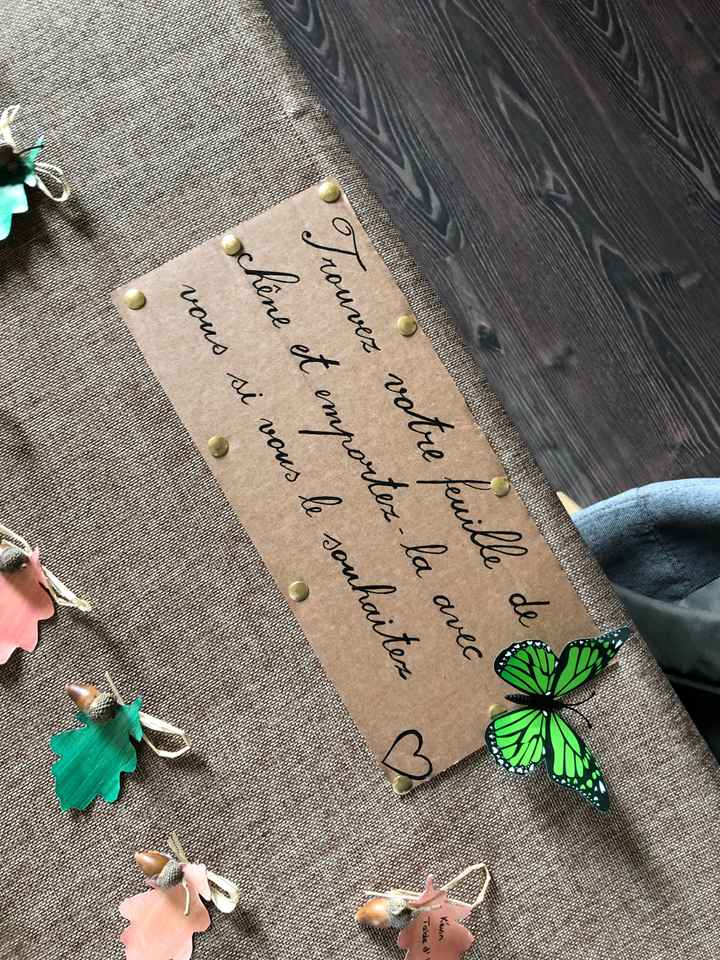 Trouvez votre feuille de
chêne et emportez-la avec
vous si vous le souhaitez